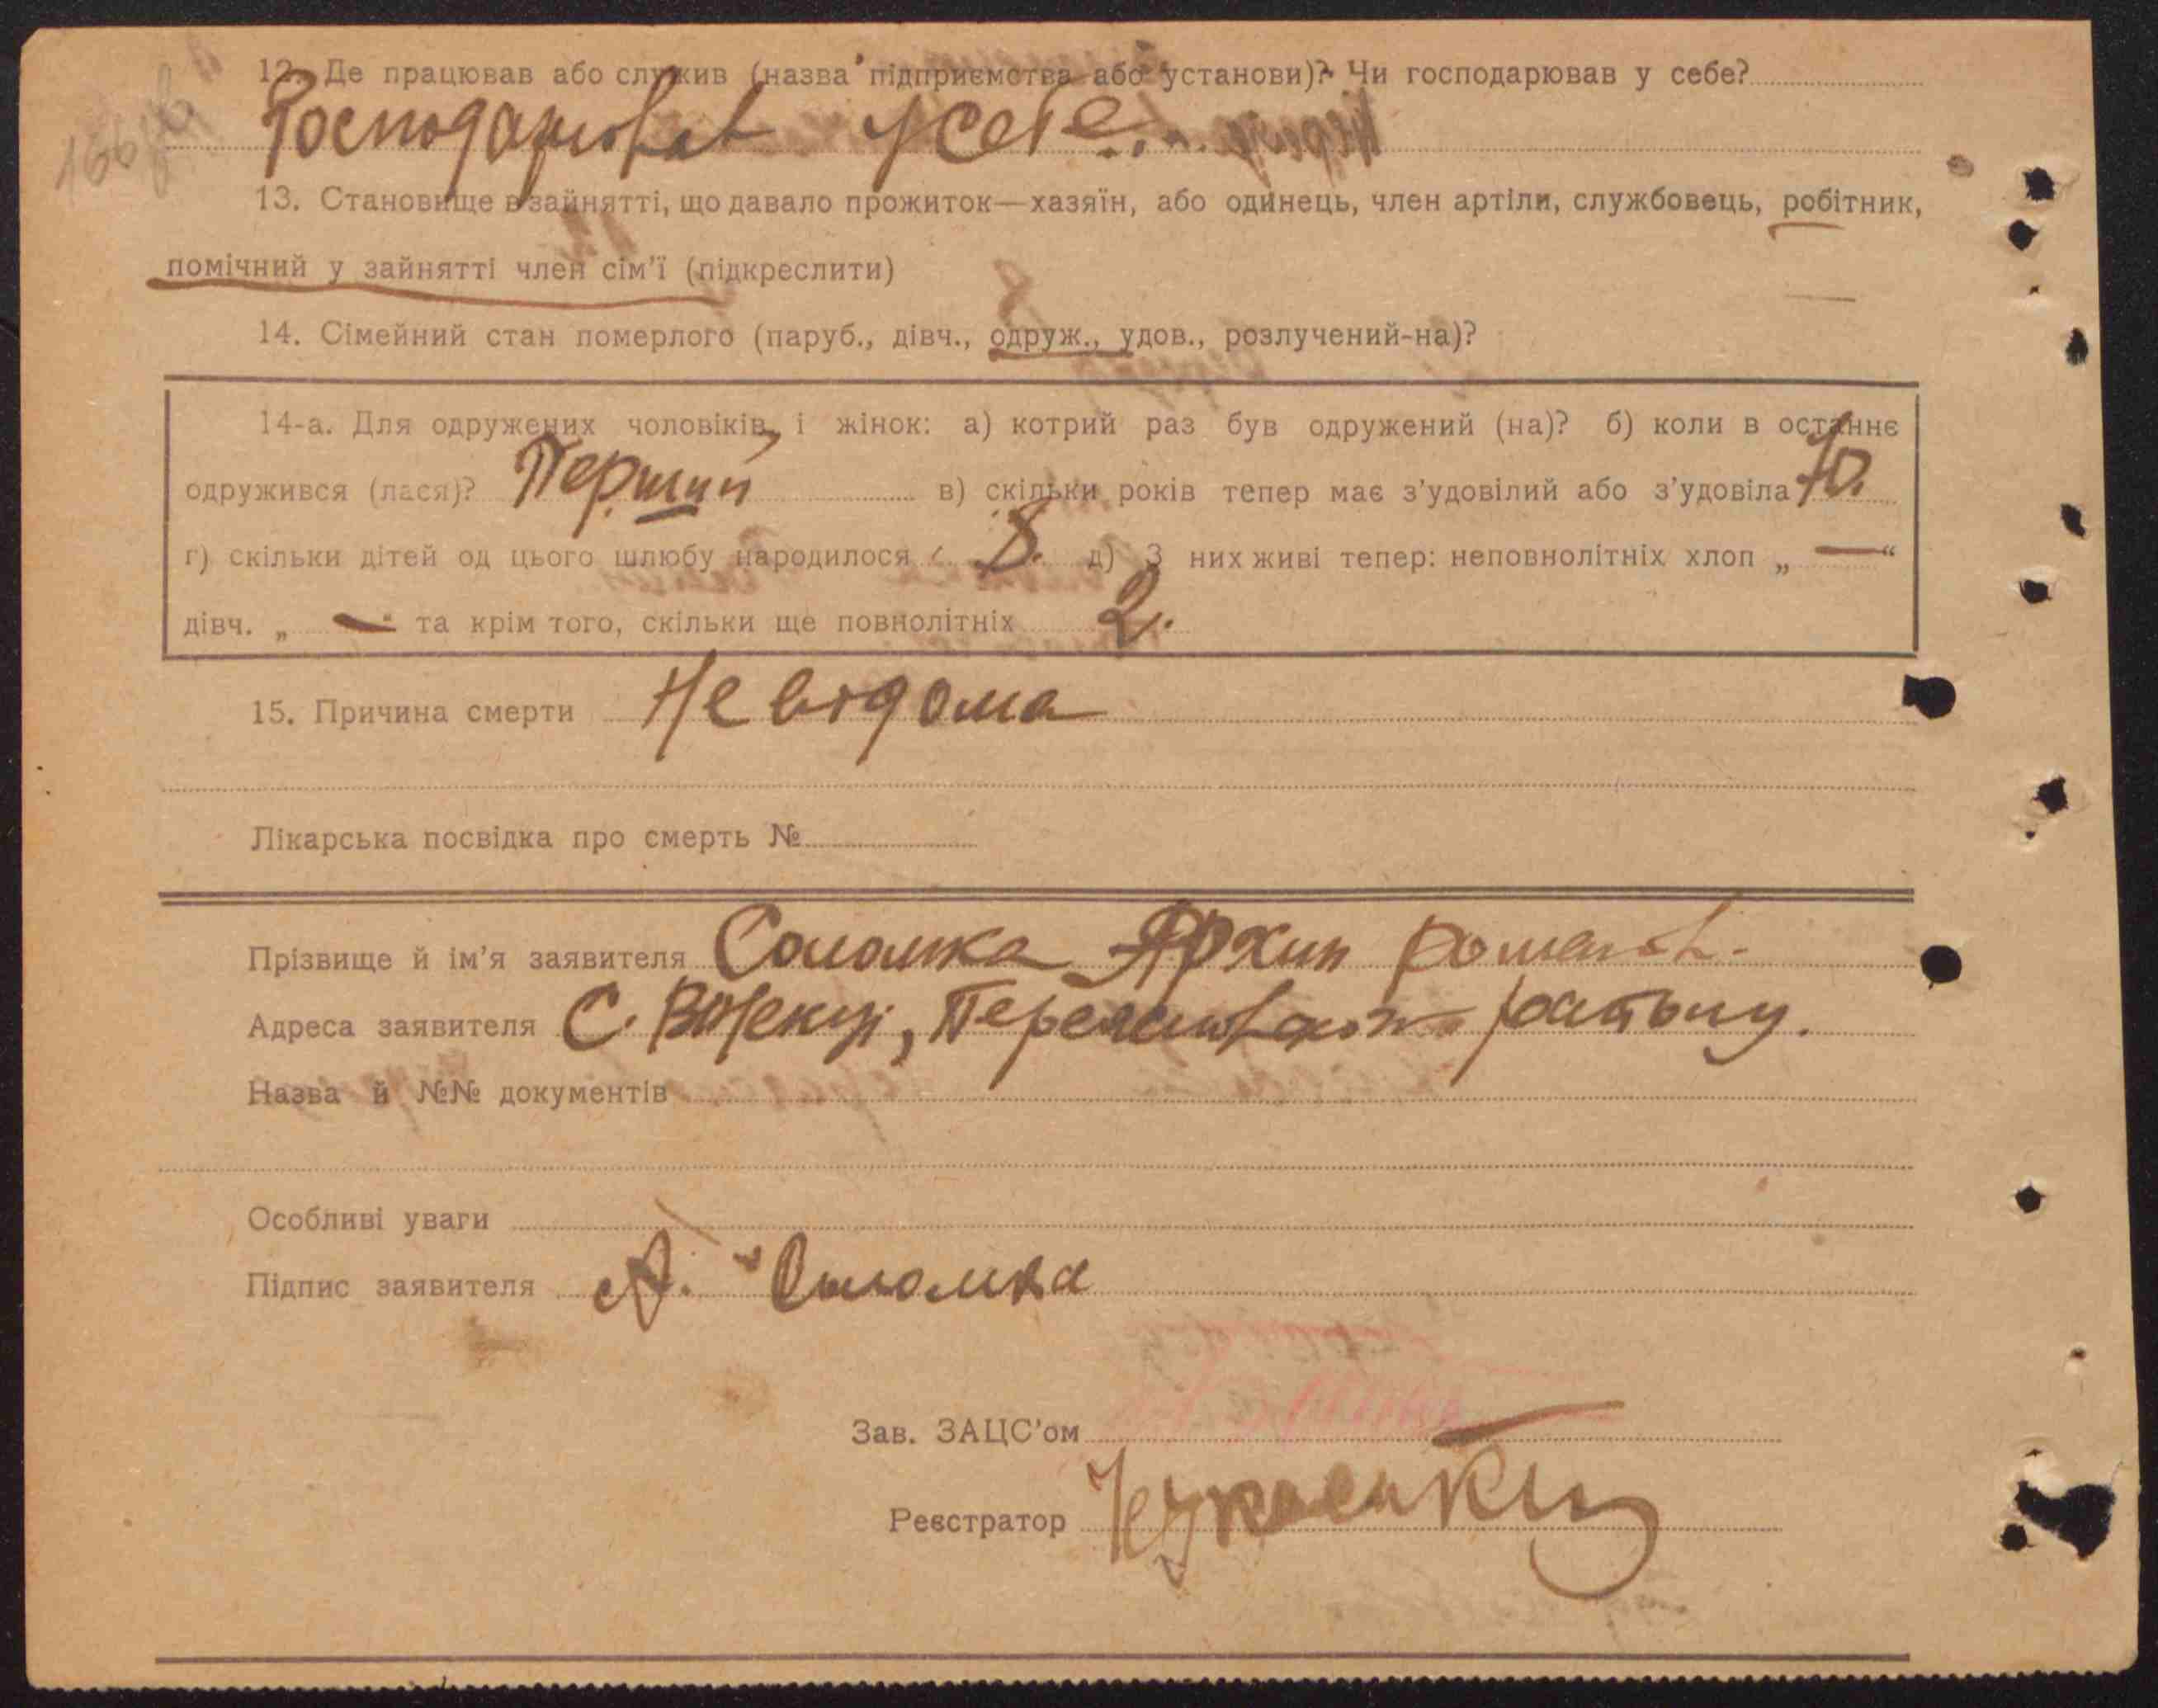 12. Де працював або служив (назва підприємства або установи)? Чи господарював у себе?
Господарював у себе.
13. Становище в зайнятті, що давало прожиток—хазяїн, або одинець, член артіли, службовець, робітник,
помічний у зайнятті член сім'ї (підкреслити)
14. Сімейний стан померлого (паруб., дівч., одруж., удов., розлучений-на)?
14-а. Для одружених чоловіків і жінок: а) котрий раз був одружений (на)? б) коли в останнє
одружився (лася)? Перший в) скільки років тепер має з'удовілий або з'удовіла 70.
г) скільки дітей од цього шлюбу народилося 8. д) З них живі тепер: неповнолітніх хлоп „ — “
дівч. „ — “ та крім того, скільки ще повнолітніх 2.
15. Причина смерти Невідома
Лікарська посвідка про смерть №
Прізвище й ім'я заявителя Соломка Архип Романов.
Адреса заявителя С.
Назва й №№ документів
Особливі уваги
Підпис заявителя А. Соломка
Зав. ЗАЦС'ом
Реєстратор